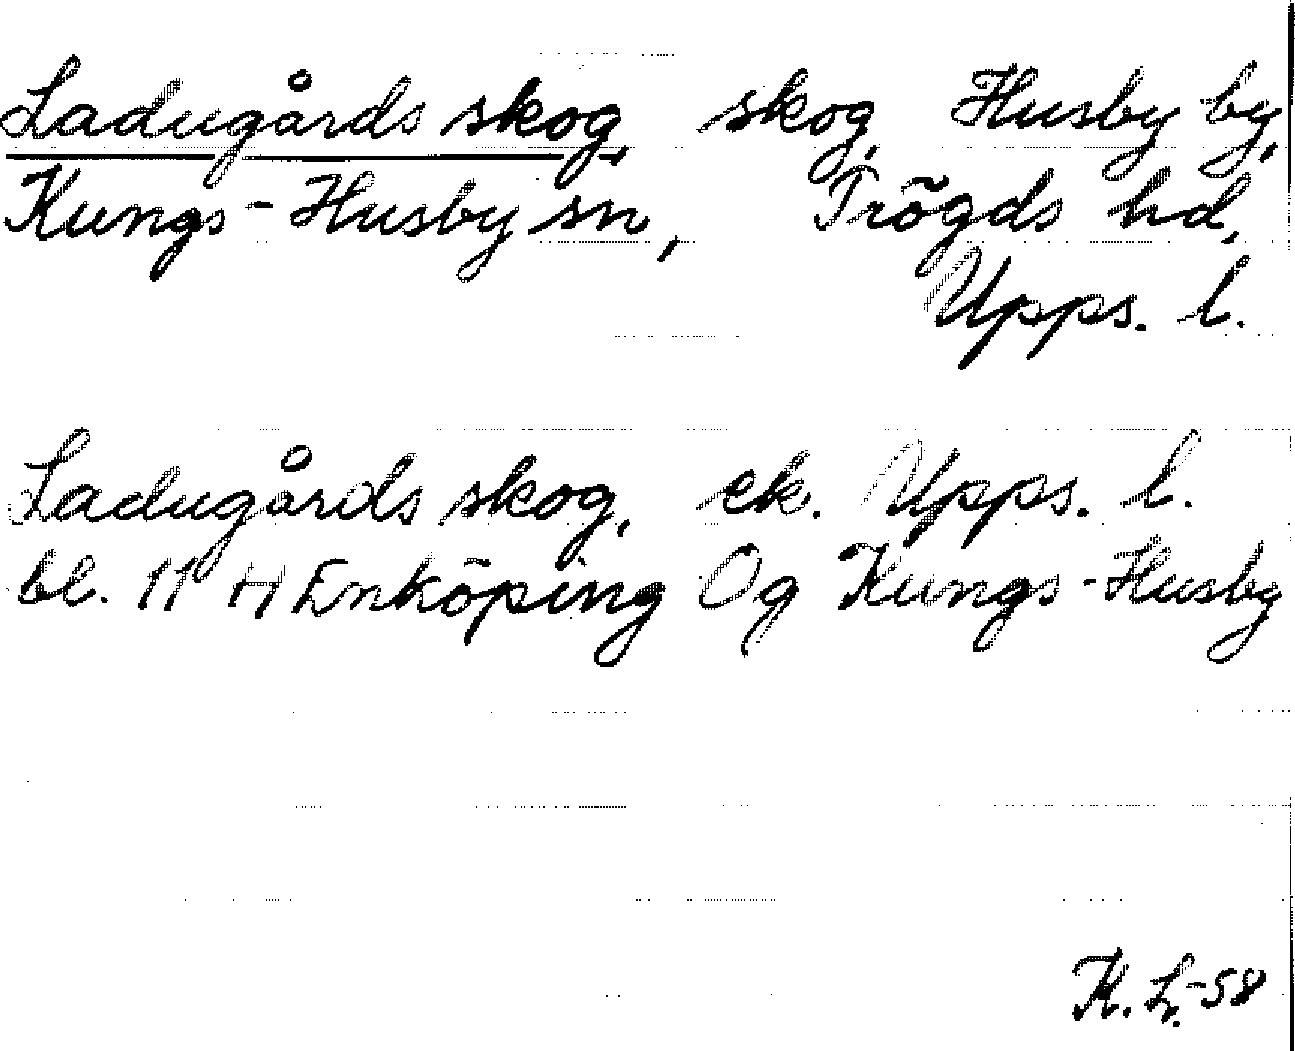 Ladugårds skog, skog, Husby by,
Kungs-Husby sn, Trögds hd,
Upps. l.
Ladugårds skog, ek. Upps. l.
bl. 11 H Enköping Og Kungs-Husby
K. L. -58